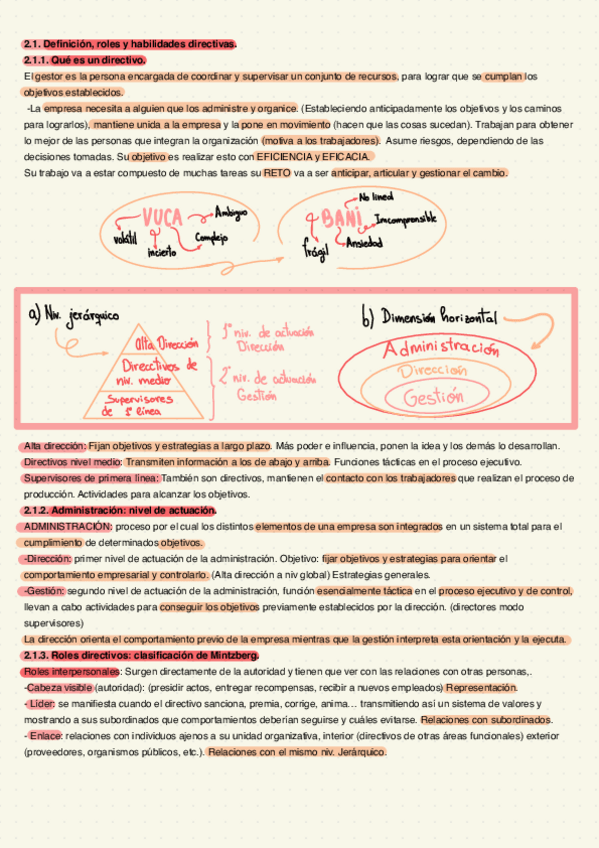 2.1. Definición, roles y habilidades directivas.
2.1.1. Qué es un directivo.
El gestor es la persona encargada de coordinar y supervisar un conjunto de recursos, para lograr que se cumplan los
objetivos establecidos.
-La empresa necesita a alguien que los administre y organice. (Estableciendo anticipadamente los objetivos y los caminos
para lograrlos), mantiene unida a la empresa y la pone en movimiento (hacen que las cosas sucedan). Trabajan para obtener
lo mejor de las personas que integran la organización (motiva a los trabajadores). Asume riesgos, dependiendo de las
decisiones tomadas. Su objetivo es realizar esto con EFICIENCIA y EFICACIA.
Su trabajo va a estar compuesto de muchas tareas su RETO va a ser anticipar, articular y gestionar el cambio.
VUCA
Ambiguo
volátil
incierto
Complejo
BANI
No lineal
Incomprensible
frágil
Ansiedad
a) Niv. jerárquico
Alta Dirección
Directivos de
niv. medio
Supervisores
de 1ª línea
1º niv. de actuación
Dirección
2º niv. de actuación
Gestión
b) Dimensión horizontal
Administración
Dirección
Gestión
Alta dirección: Fijan objetivos y estrategias a largo plazo. Más poder e influencia, ponen la idea y los demás lo desarrollan.
Directivos nivel medio: Transmiten información a los de abajo y arriba. Funciones tácticas en el proceso ejecutivo.
Supervisores de primera línea: También son directivos, mantienen el contacto con los trabajadores que realizan el proceso de
producción. Actividades para alcanzar los objetivos.
2.1.2. Administración: nivel de actuación.
ADMINISTRACIÓN: proceso por el cual los distintos elementos de una empresa son integrados en un sistema total para el
cumplimiento de determinados objetivos.
-Dirección: primer nivel de actuación de la administración. Objetivo: fijar objetivos y estrategias para orientar el
comportamiento empresarial y controlarlo. (Alta dirección a niv global) Estrategias generales.
-Gestión: segundo nivel de actuación de la administración, función esencialmente táctica en el proceso ejecutivo y de control,
llevan a cabo actividades para conseguir los objetivos previamente establecidos por la dirección. (directores modo
supervisores)
La dirección orienta el comportamiento previo de la empresa mientras que la gestión interpreta esta orientación y la ejecuta.
2.1.3. Roles directivos: clasificación de Mintzberg.
Roles interpersonales: Surgen directamente de la autoridad y tienen que ver con las relaciones con otras personas,.
-Cabeza visible (autoridad): (presidir actos, entregar recompensas, recibir a nuevos empleados) Representación.
- Líder: se manifiesta cuando el directivo sanciona, premia, corrige, anima... transmitiendo así un sistema de valores y
mostrando a sus subordinados que comportamientos deberían seguirse y cuáles evitarse. Relaciones con subordinados.
- Enlace: relaciones con individuos ajenos a su unidad organizativa, interior (directivos de otras áreas funcionales) exterior
(proveedores, organismos públicos, etc.). Relaciones con el mismo niv. Jerárquico.